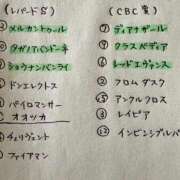 (レパードS)
メルカントゥール
タガノアバンドーネ
ショウナンバンライ
ドンエレクトス
パイロマンサー
オオツカ
チュリヴェント
ファイアマン
(CBC賞)
⑦ ディアナザール
⑨ クラスペディア
⑥ レッドエヴァンス
② フロムダスク
① アンクルクロス
③ レイピア
⑫ インビンシブルパパ